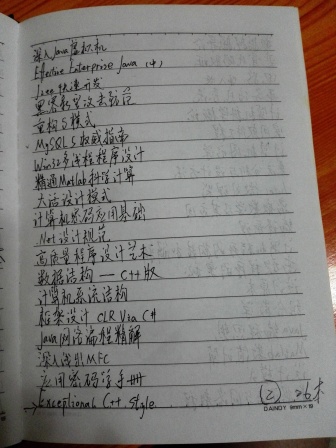 深入Java虚拟机
Effective Enterprise Java (中)
J2ee 快速开发
黑客 攻击防范
重构与模式
MySQL 5 权威指南
Win32多线程程序设计
精通Matlab科学计算
大话设计模式
计算机密码应用基础
.Net设计规范
高质量程序设计艺术
数据结构 — C++版
计算机系统结构
框架设计 CLR Via C#
Java网络编程精解
深入浅出MFC
应用密码学手册
→Exceptional C++ Style
② 26本
DAINDY 8mm×19